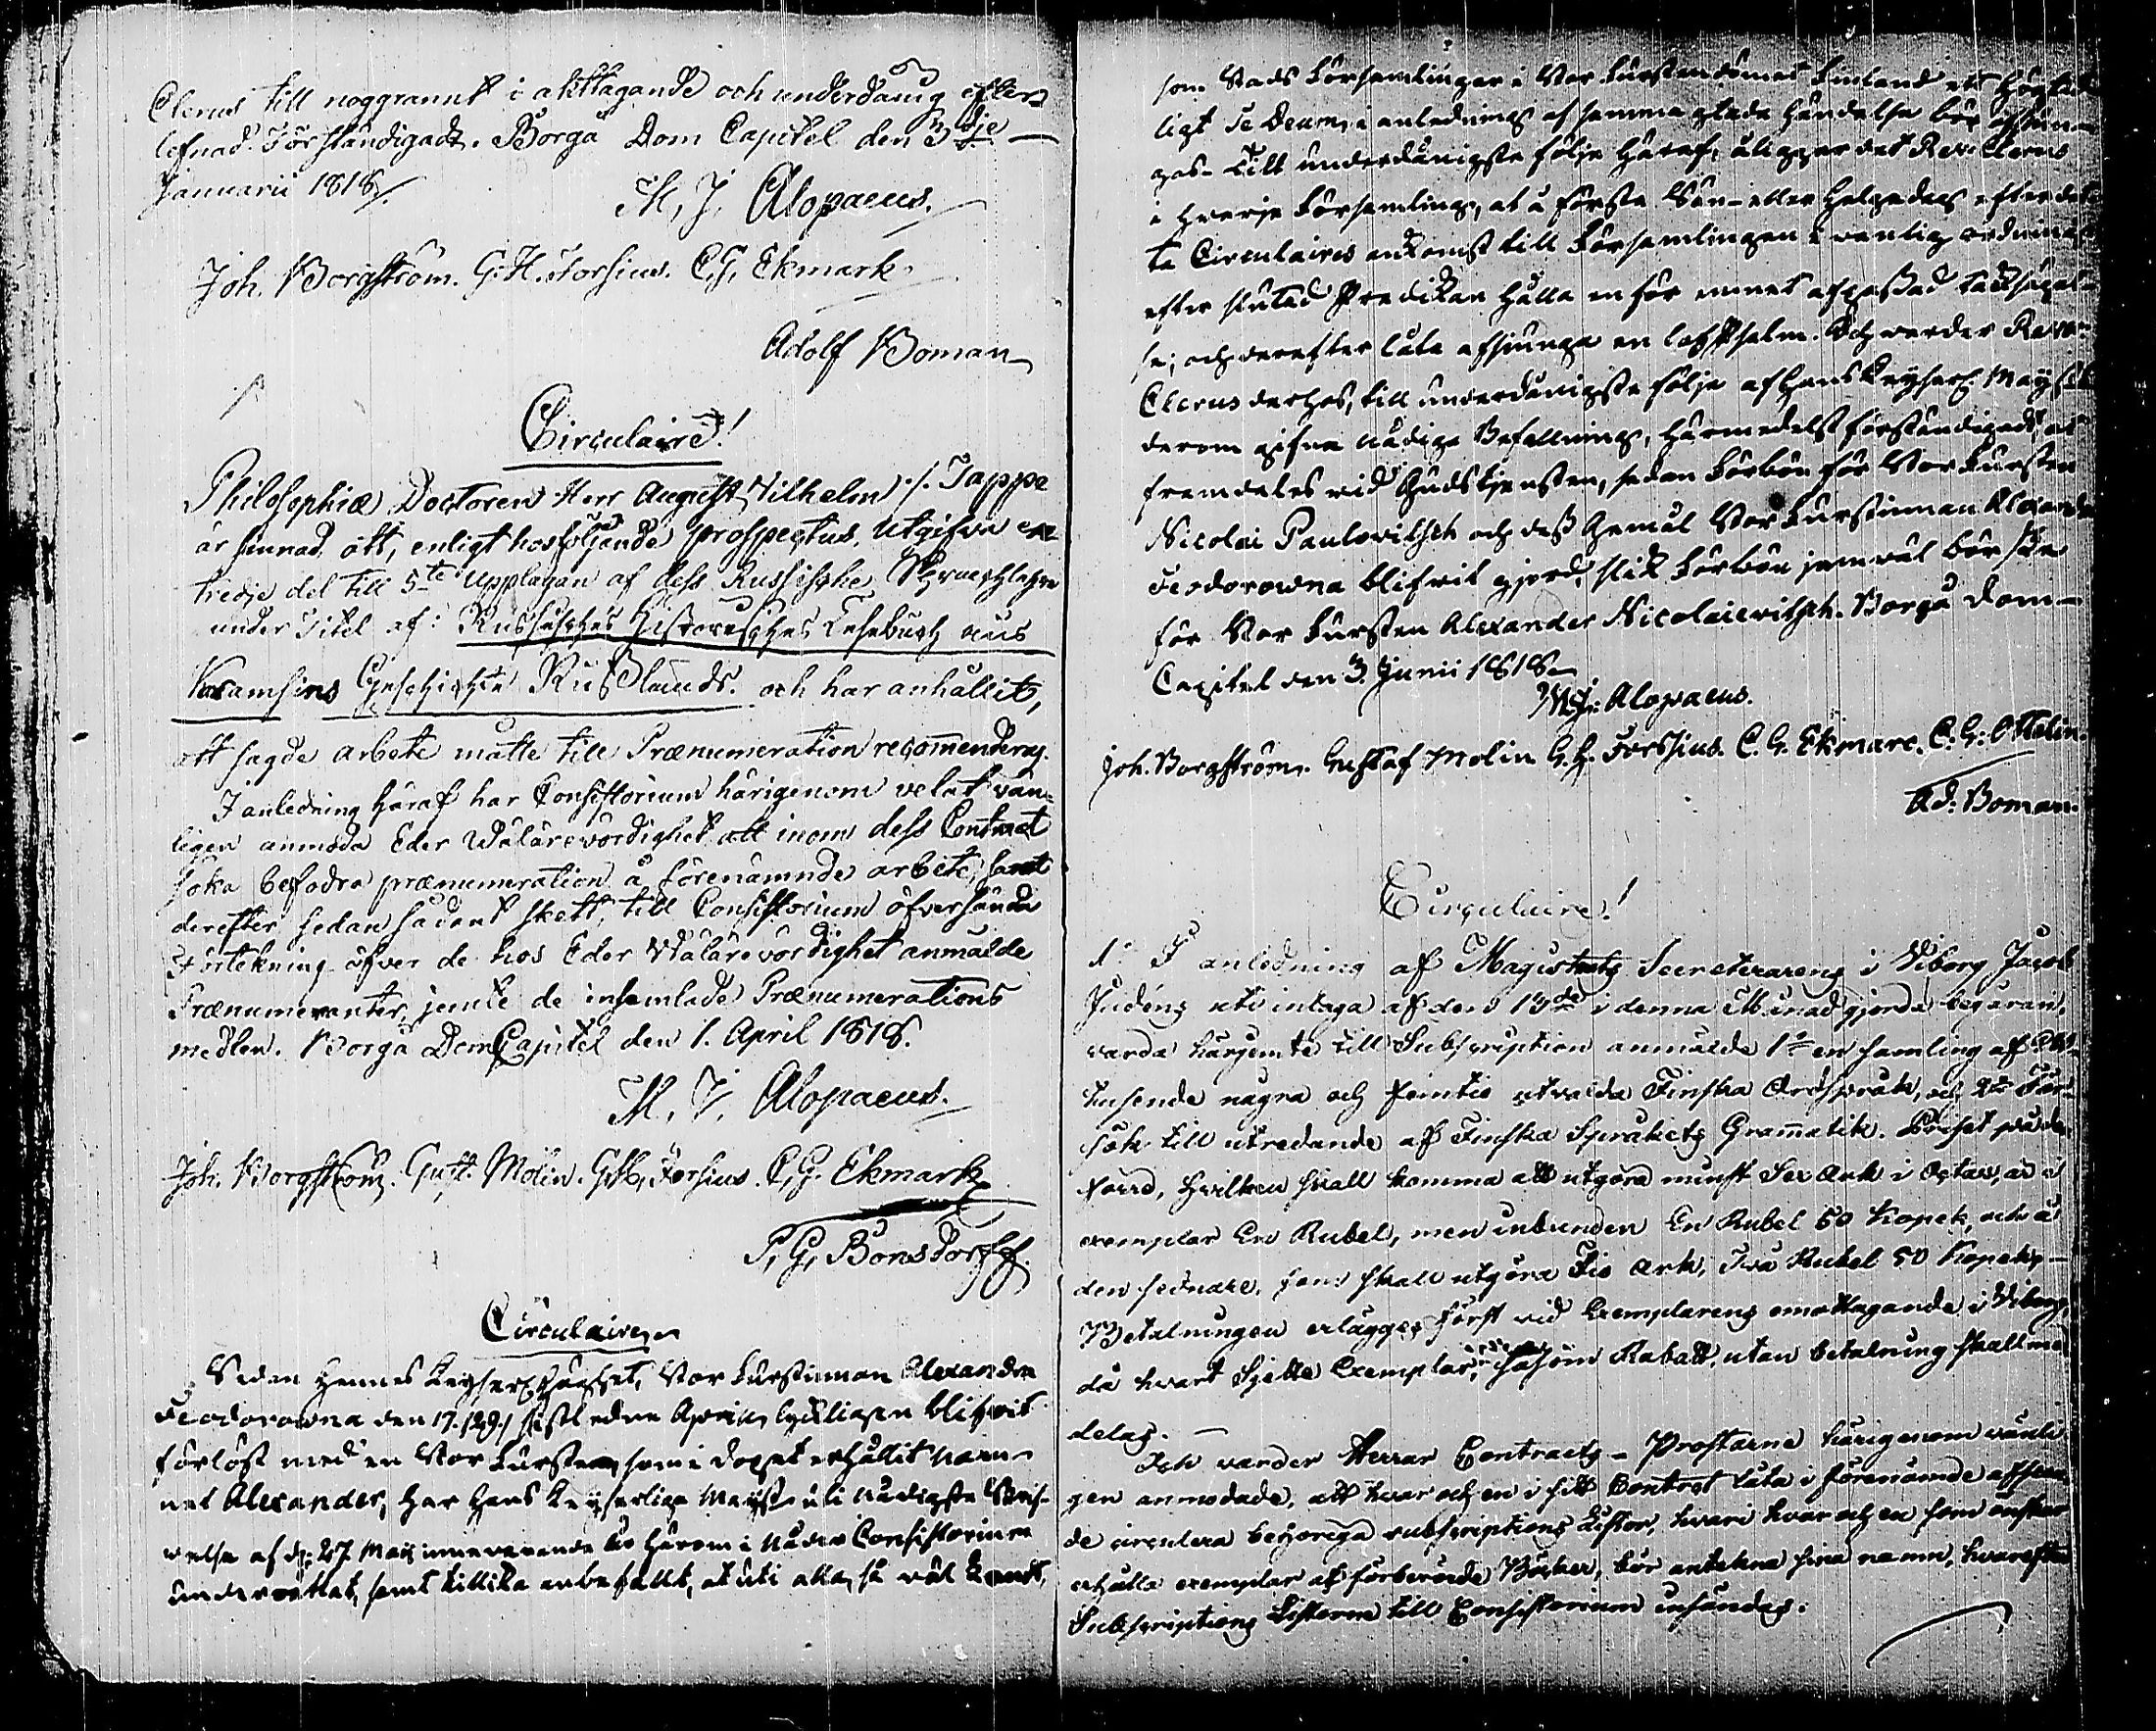 Clerus till noggrannt i akttagande och underdånig efter-
lefnad. Förständigadt. Borgå Dom Capitel den 3dje
Januarii 1818.
M. J. Alopaeus.
Joh. Borgström. G. H. Forsius. C. G. Ekmark.
Adolf Boman
Circulaire!
Philosophiæ Doctoren Herr August Wilhelm Tappe
är sinnad att, enligt hosföljande prospectus, utgifva en
tredje del till 5te Upplagan af dess Russische Sprachlehre
under Titel af: Russisches Historisches Lesebuch aus
Karamsins Geschichte Rußlands. och har anhållit,
att sagde arbete måtte till Prænumeration recomenderas.
I anledning häraf har Consistorium härigenom velat vän-
ligen anmoda Eder Wälärevördighet att inom dess Contract
söka befodra prænumeration å förenämnde arbete, samt
derefter sedan sådant skett, till Consistorium öfversända
Förtekning öfver de hos Eder Wälärevördighet anmälde
Prænumeranter, jemte de insamlade Prænumerations
medlen. Borgå Dom Capitel den 1. April 1818.
M. J. Alopaeus.
Joh. Borgström. Gust. Molin. G. H. Forsius. C. G. Ekmark
P. G. Bonsdorff.
Circulaire
Sedan Hennes Keyserl. Höghet, Stor Furstinnan Alexandra
Feodorowna den 17. (29.) sistledne April, lyckligen blifvit
förlöst med en Stor Furste, som i dopet erhållit Nam-
net Alexander, har Hans Keyserliga Majst. uti nådigste Skrif-
velse af d. 27 Maji innevarande år härom i Nåder Consistorium
underrättat, samt tillika anbefallt, at uti alla, så väl Lands,
som Stads Församlingar i Stor Furstendömet Finland ett Högtid-
ligt Te Deum, i anledning af samma glada Händelse bör afsjun-
gas. Till underdånigste följe häraf, åligger det Rev. Clerus
i Hvarje Församling, at å första Sön- eller Helgedag efter det-
ta Circulaires ankomst till Församlingen i vanlig ordning
efter slutad Predikan hålla en för ämnet afpassad tacksägel-
se; och derefter låta afsjunga en lof Psalm. Och warder Rev.
Clerus derhos, till underdånigste följe af Hans Keyserl. Maj:sts
derom gifne nådige Befallning, härmedelst förständigadt, at
framdeles vid Gudstjensten, sedan Förbön för Stor Fursten
Nicolai Paulovitsch och dess Gemål Stor Furstinnan Alexandra
Feodorowna blifvit gjord, slik Förbön jemväl bör ske
för Stor Fursten Alexander Nicolaiewitsch. Borgå Dom-
Capitel den 3. Junii 1818.
M. J. Alopaeus.
Joh. Borgström. Gustaf Molin. G. H. Forssius. C. G. Ekmarc. C. G. Ottelin.
Ad. Boman.
Circulaire!
1o I anledning af Magistrats Secreterarens i Viborg Jacob
Judéns uti inlaga af den 13de i denna Månad gjorde begäran,
varda härjemte till Subscription anmälde 1o en samling af
tusende några och femtio utvalda Finska Ordspråk, och 2o För-
sök till utredande af Finska Språkets Gramatik. Priset på den
förre, hvilken skall komma att utgöra minst Sex Ark i Octav, är å
exemplar En Rubel, men inbunden En Rubel 50 Kopek, och å
den sednare, som skall utgöra Tio Ark, Två Rubel 50 Kopek,
Betalningen erlägges först vid Exemplarens emottagande i Viborg
då hvart Sjette Exemplar, såsom Rabatt, utan betalning skall med-
delas.
Och varder Herrar Contracts-Prostarne härigenom vänli-
gen anmodade, att hvar och en i sitt Contract låta i förenämde afseen-
de circulera behöriga subscriptions Listor, hvari hvar och en som önskar
erhålla exemplar af förberörde Böcker, bör antekna sina namn, hvarefter
Subscriptions Listorne till Consistorium insändas.